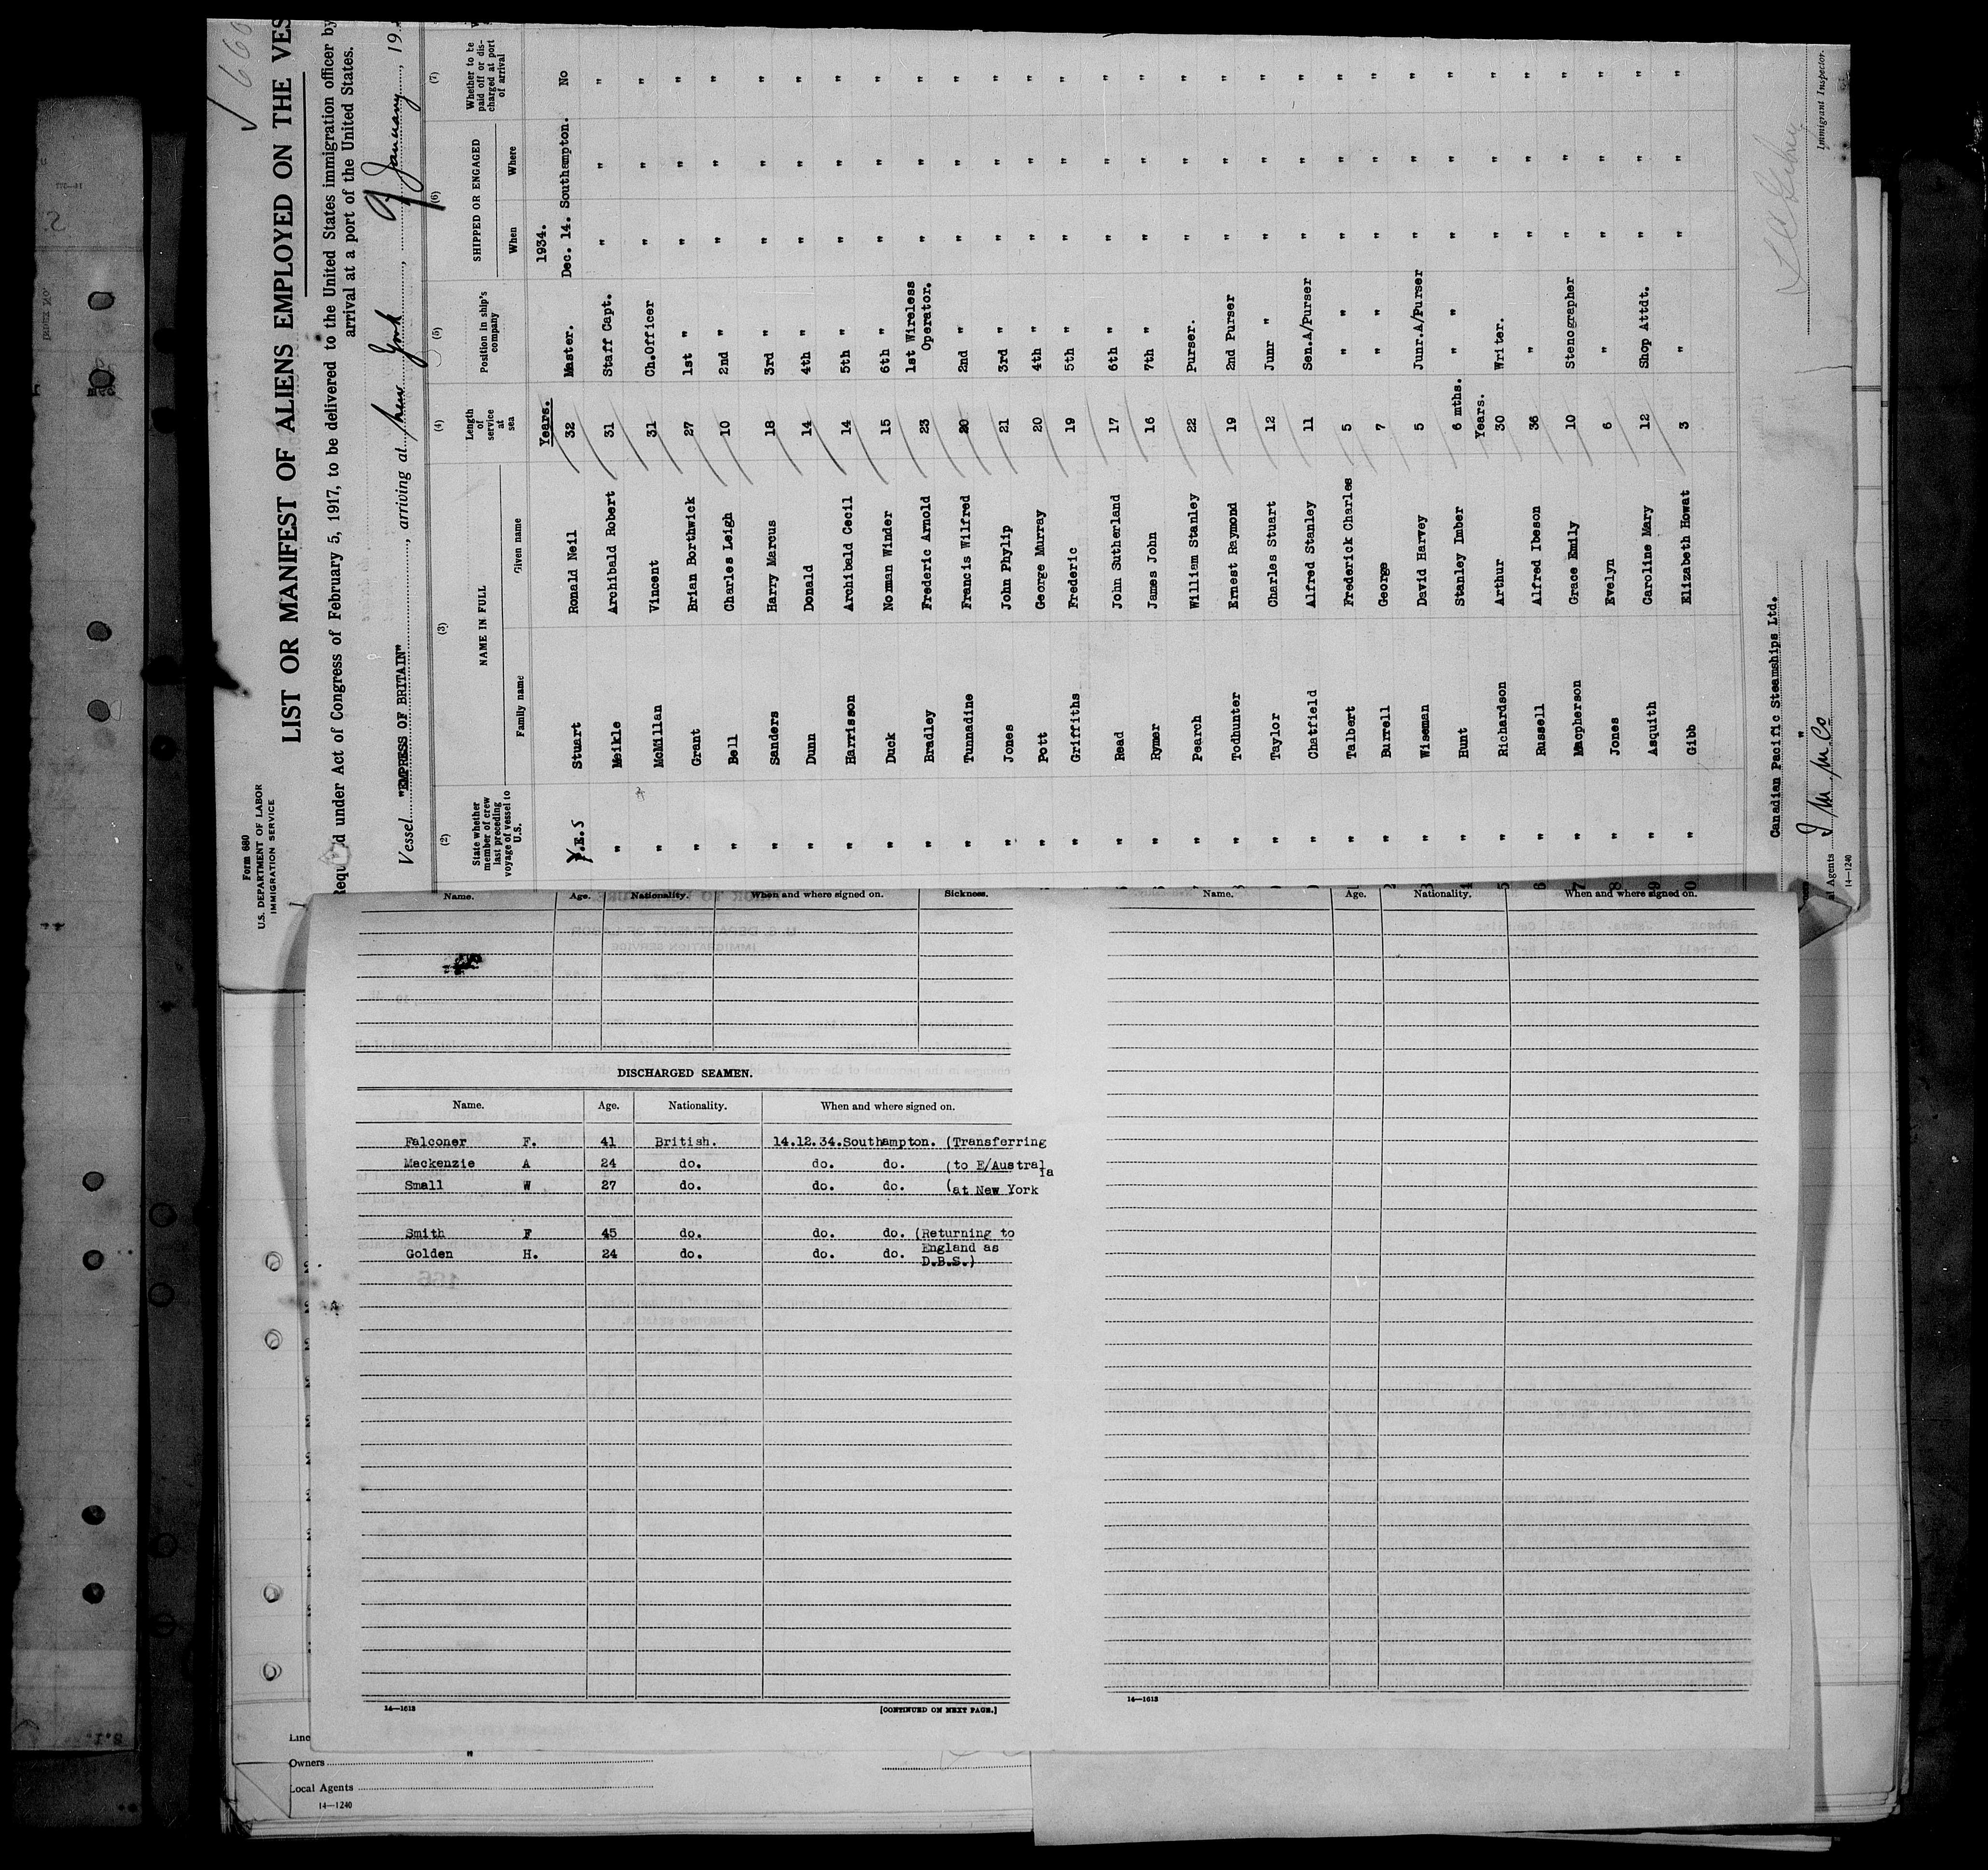 Form 680
U.S. DEPARTMENT OF LABOR
IMMIGRATION SERVICE
✓ 660
LIST OR MANIFEST OF ALIENS EMPLOYED ON THE VES
under Act of Congress of February 5, 1917, to be delivered to the United States immigration officer by
arrival at a port of the United States.
Vessel "EMPRESS OF BRITAIN", arriving at New York, 9 January, 19
(2) (3) (4) (5) (6) (7)
State whether member of crew last preceding voyage of vessel to U.S. NAME IN FULL Length of service at sea Position in ship's company SHIPPED OR ENGAGED Whether to be paid off or discharged at port of arrival
Family name Given name When Where
Years. 1934.
YES Stuart Ronald Neil 32 Master. Dec. 14. Southampton. No
" Meikle Archibald Robert 31 Staff Capt. " " "
" McMillan Vincent 31 Ch.Officer " " "
" Grant Brian Borthwick 27 1st " " " "
" Bell Charles Leigh 10 2nd " " " "
" Sanders Harry Marcus 18 3rd " " " "
" Dunn Donald 14 4th " " " "
" Harrisson Archibald Cecil 14 5th " " " "
" Duck Norman Winder 15 6th " " " "
" Bradley Frederic Arnold 23 1st Wireless Operator. " " "
" Tunnadine Francis Wilfred 20 2nd " " " "
" Jones John Phylip 21 3rd " " " "
" Pott George Murray 20 4th " " " "
" Griffiths Frederic 19 5th " " " "
" Read John Sutherland 17 6th " " " "
" Rymer James John 16 7th " " " "
" Pearch William Stanley 22 Purser. " " "
" Todhunter Ernest Raymond 19 2nd Purser " " "
" Taylor Charles Stuart 12 Junr " " " "
" Chatfield Alfred Stanley 11 Sen.A/Purser " " "
" Talbert Frederick Charles 5 " " " " "
" Burrell George 7 " " " " "
" Wiseman David Harvey 5 Junr.A/Purser " " "
" Hunt Stanley Imber 6 mths. " " " " "
Years.
" Richardson Arthur 30 Writer. " " "
" Russell Alfred Ibeson 36 " " " "
" Macpherson Grace Emily 10 Stenographer " " "
" Jones Evelyn 6 " " " "
" Asquith Caroline Mary 12 Shop Attdt. " " "
" Gibb Elizabeth Howat 3 " " " "
Canadian Pacific Steamships Ltd.
"
l Agents I. M. M. Co
14—1240
Immigrant Inspector.
Name. Age. Nationality. When and where signed on. Sickness.
DISCHARGED SEAMEN.
Name. Age. Nationality. When and where signed on.
Falconer F. 41 British. 14.12.34.Southampton. (Transferring
Mackenzie A 24 do. do. do. (to E/Australia
Small W 27 do. do. do. (at New York
Smith F 45 do. do. do. (Returning to
Golden H. 24 do. do. do. England as
D.B.S.)
14—1613
[CONTINUED ON NEXT PAGE.]
Name. Age. Nationality. When and where signed on.
14—1613
Line
Owners
Local Agents
14—1240